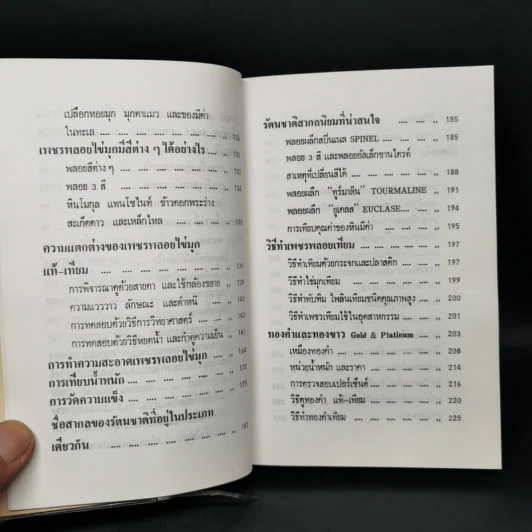 เปลือกหอยมุก มุกตาแมว และของมีค่า
ในทะเล .... .... .... .... .... .... ,,
เพชรพลอยไข่มุกมีสีต่าง ๆ ได้อย่างไร ,,
พลอยสีต่าง ๆ .... .... .... .... .... ,, 131
พลอย 3 สี .... .... .... .... .... ,, 134
หินโมกุล แทนโซไนท์ ข้าวตอกพระร่วง
สะเก็ดดาว และเหล็กไหล .... .... .... ,,
ความแตกต่างของเพชรพลอยไข่มุก
แท้-เทียม .... .... .... .... .... .... ,, 139
การพิจารณาดูด้วยสายตา และใช้กล้องขยาย ,,
ความแวววาว ลักษณะ และตำหนิ .... ,,
การทดสอบด้วยวิธีการวิทยาศาสตร์ .... ,,
การทดสอบด้วยวิธีหยดน้ำ และทำดูความเย็น ,,
การทำความสะอาดเพชรพลอยไข่มุก .... ,, 164
การเทียบน้ำหนัก .... .... .... .... ,, 174
การวัดความแข็ง .... .... .... .... ,, 175
ชื่อสากลของรัตนชาติที่อยู่ในประเภท
เดียวกัน .... .... .... .... .... .... ,, 181
รัตนชาติสากลนิยมที่น่าสนใจ .... .... ,, 185
พลอยผลึกสบิ่นเนล SPINEL .... .... ,, 185
พลอย 3 สี และพลอยอัลเล็กซานไดรต์
สาเหตุที่เปลี่ยนสีได้ .... .... .... .... ,, 188
พลอยผลึก "ทุร์มาลีน" TOURMALINE ,, 191
พลอยผลึก "ยูเคลส" EUCLASE.... .... ,, 194
การเทียบคุณค่าของหินมีค่า .... .... .... ,, 195
วิธีทำเพชรพลอยเทียม .... .... .... .... ,, 197
วิธีทำเทียมด้วยกระจกและปลาสติก .... ,, 197
วิธีทำไข่มุกเทียม .... .... .... .... ,, 199
วิธีทำทับทิม ไพลินเทียมชนิดคุณภาพสูง ,, 200
วิธีทำเพชรเทียมใช้ในอุตสาหกรรม .... ,, 201
ทองคำและทองขาว Gold & Platinum .... ,, 203
เหมืองทองคำ .... .... .... .... .... ,, 208
หน่วยน้ำหนัก และราคา .... .... .... ,, 214
การตรวจสอบเปอร์เซ็นต์ .... .... .... ,, 221
วิธีดูทองคำ แท้-เทียม .... .... .... ,, 222
วิธีทำทองคำเทียม .... .... .... .... ,, 225